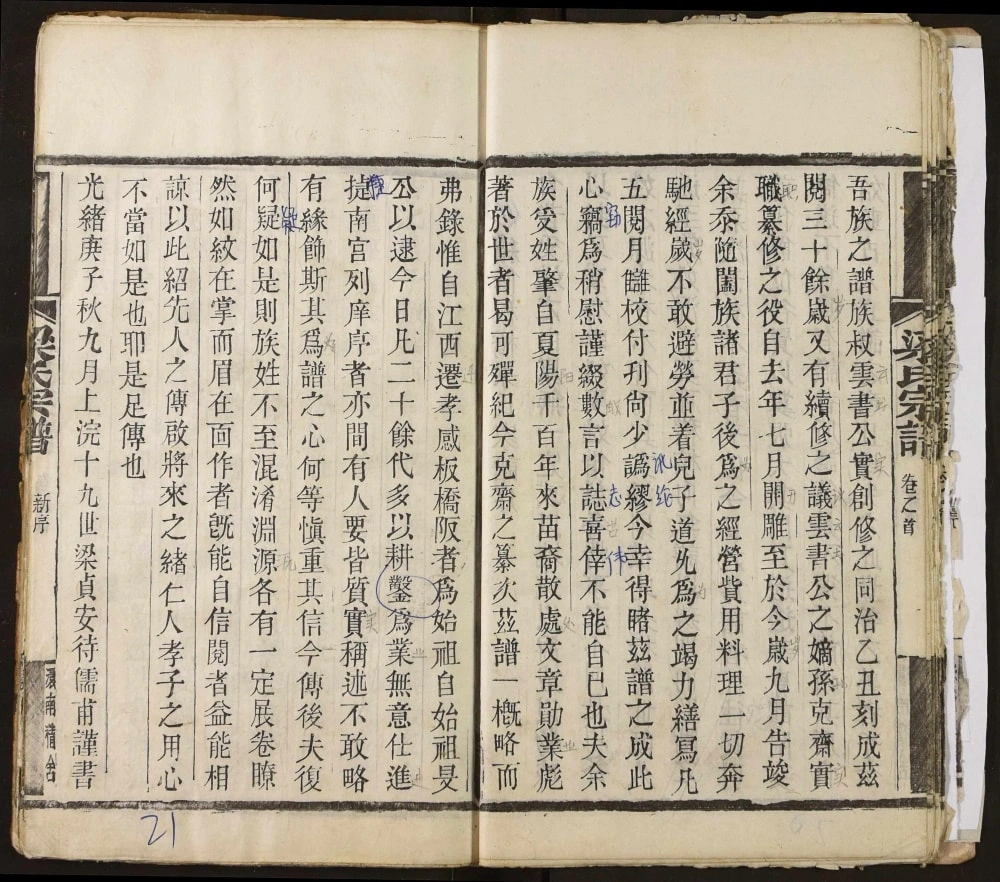 梁氏宗譜
卷之首
吾族之譜族叔雲書公實創修之同治乙丑刻成茲
閱三十餘歲又有續修之議雲書公之嫡孫克齋實
職纂修之役自去年七月開雕至於今歲九月告竣
余忝隨闔族諸君子後爲之經營費用料理一切奔
馳經歲不敢避勞並着兒子道九爲之竭力繕寫凡
五閱月讎校付刋尙少譌繆今幸得睹茲譜之成此
心竊爲稍慰謹綴數言以誌喜倖不能自已也夫余
族受姓肇自夏陽千百年來苗裔散處文章勛業彪
著於世者曷可殫紀今克齋之纂次茲譜一槪略而
弗錄惟自江西遷孝感板橋阪者爲始祖自始祖旻
公以逮今日凡二十餘代多以耕鑿爲業無意仕進
㨗南宮列庠序者亦間有人要皆質實稱述不敢略
有緣飾斯其爲譜之心何等愼重其信今傳後夫復
何疑如是則族姓不至混淆淵源各有一定展卷瞭
然如紋在掌而眉在面作者旣能自信閱者益能相
諒以此紹先人之傳啟將來之緒仁人孝子之用心
不當如是也耶是足傳也
光緒庚子秋九月上浣十九世梁貞安待儒甫謹書
梁氏宗譜
新序
21